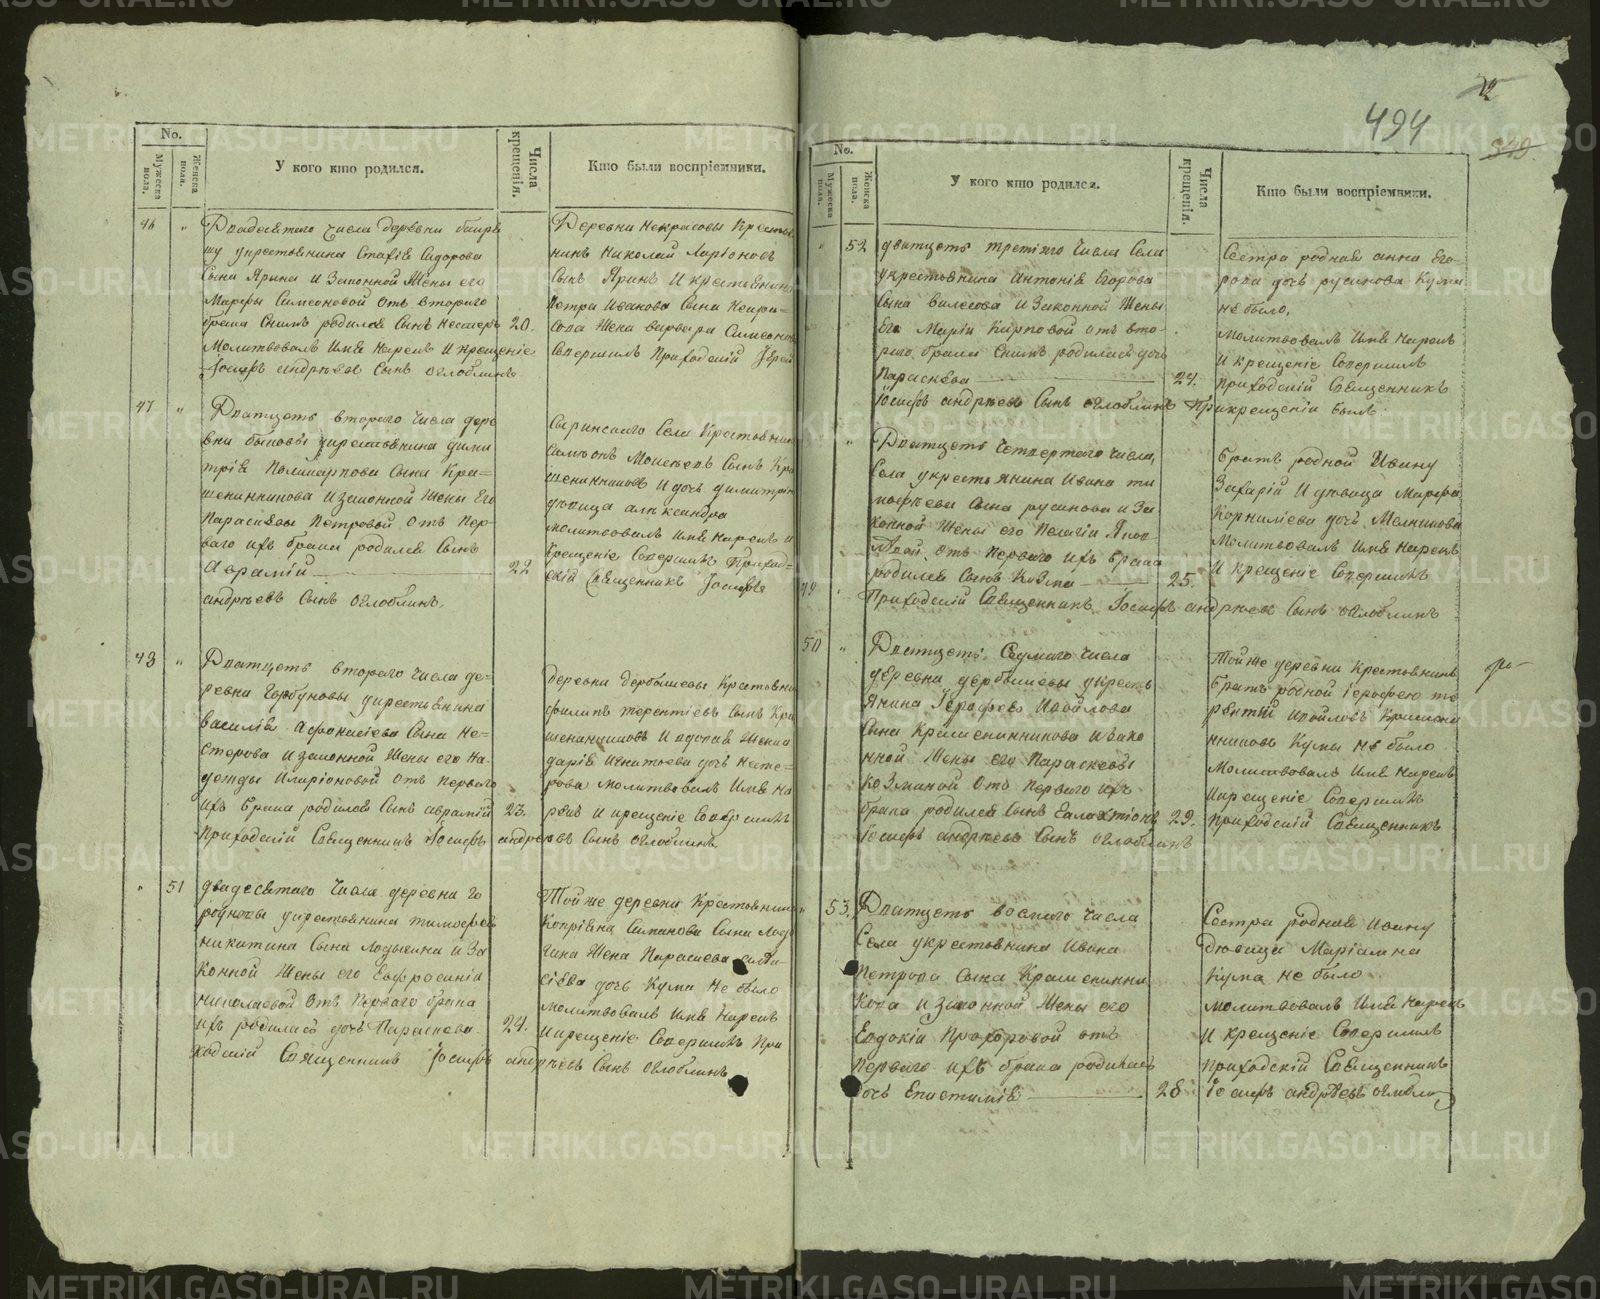 494
No.
Мужеска пола.
Женска пола.
У кого кто родился.
Числа крещенія.
Кто были воспріемники.
46
Двадесятаго числа деревни
шу укрестьянина Сидорова
Сына Ярина и Законной Жены его
Марфы Симеоновой отъ втораго
брака Снимъ родился Сынъ 20.
Молитвовалъ Имя Нарекъ и крещеніе
Іосифъ андрѣевъ Сынъ оглоблинъ
Деревни некрасовы Крестьян
нинъ Николай Ларіоновъ
Сынъ Яринъ И крестьянина
Петра Иванова Сына Некра=
сова Жена варвара Симеонов
Совершилъ Приходскій Іерей
47
Дватцеть втораго числа дере
вни быковы укрестьянина дими
трія Поликарпова Сына Кра=
шенинникова И законной Жены Его
Параскевы Петровой отъ пер-
ваго ихъ брака родился Сынъ
Аврамій 22
андрѣевъ Сынъ оглоблинъ.
Села Крестьянинъ
Моисѣевъ Сынъ Кра
шенинниковъ И дочь димитрія
дѣвица алѣксандра
молитвовалъ имя нарекъ и
крещеніе Совершилъ Приход=
скій Священникъ Іосифъ
48
Дватцеть втораго числа де=
ревни Горбуновы укрестьянина
василія Афонасіева Сына Не=
стерова И законной Жены его На
дежды Иларіоновой отъ перваго
ихъ брака родился Сынъ аврамій 23.
Приходскій Священникъ Іосифъ андрѣевъ Сынъ оглоблинъ
деревни дербышевы Крестьянин
филипъ терентіевъ Сынъ Кра
шенинниковъ И Жена
дарія Игнатьева дочь Несте=
рова молитвовалъ Имя На
рекъ и крещеніе Совершилъ
51
двадесятаго числа деревни го
укрестьянина тимофея
никитина Сына Ладыгина и За
конной Жены его Евфросиніи
николаевой отъ перваго брака
ихъ родилась дочь Параскева 24.
ходскій Священникъ Іосифъ андрѣевъ Сынъ оглоблинъ
Той же деревни Крестьянина
Сына Лады
гина Жена Параскева
сіева дочь Кума Не было
молитвовалъ Имя Нарекъ
и крещеніе Совершилъ При
No.
Мужеска пола.
Женска пола.
У кого кто родился.
Числа крещенія.
Кто были воспріемники.
52
дватцеть третіяго числа Села
укрестьянина Антонія Егорова
Сына И Законной Жены
Его Маріи Карповой отъ вто-
раго брака Снимъ родилась дочь
Параскева 24.
Іосифъ андрѣевъ Сынъ оглоблинъ Прикрещеніи былъ.
Сестра родная анна Его-
рова дочь русинова Кума
не было,
Молитвовалъ Имя Нарекъ
И крещеніе Совершилъ
приходскій Священникъ
49
Дватцеть Четвертаго числа,
Села укрестьянина Ивана ти
мофѣева Сына русинова и За
конной Жены его Пелагіи
отъ перваго ихъ брака
родился Сынъ Козма 25.
Приходскій Священникъ Іосифъ андрѣевъ Сынъ оглоблинъ
братъ родной Ивану
Захарій И дѣвица Марфа
Корниліева дочь Мелникова
Молитвовалъ Имя Нарекъ
И крещеніе Совершилъ
50
Дватцеть Седмаго числа
деревни дербышевы укресть
янина Іерофея Измайлова
Сына Крашенинникова И зако
нной Жены его Параскевы
Козминой отъ перваго ихъ
брака родился Сынъ Галактіонъ 29.
Іосифъ андрѣевъ Сынъ оглоблинъ
Той же деревни Крестьянинъ
братъ родной Іерофею те
рентій Крашени
нниковъ Кумы не было
Молитвовалъ Имя Нарекъ
И крещеніе Совершилъ
Приходскій Священникъ
53.
Дватцеть восмаго числа
Села укрестьянина Ивана
Петрова Сына Крашенинни
кова и законной Жены его
Евдокіи Прохоровой отъ
перваго ихъ брака родилась
дочь Епистимія 28
Сестра родная Ивану
дѣвица Маріамна
Кума не было
молитвовалъ Имя Нарекъ
И крещеніе Совершилъ
Приходскій Священникъ
Іосифъ андрѣевъ оглобли
METRIKI.GASO-URAL.RU